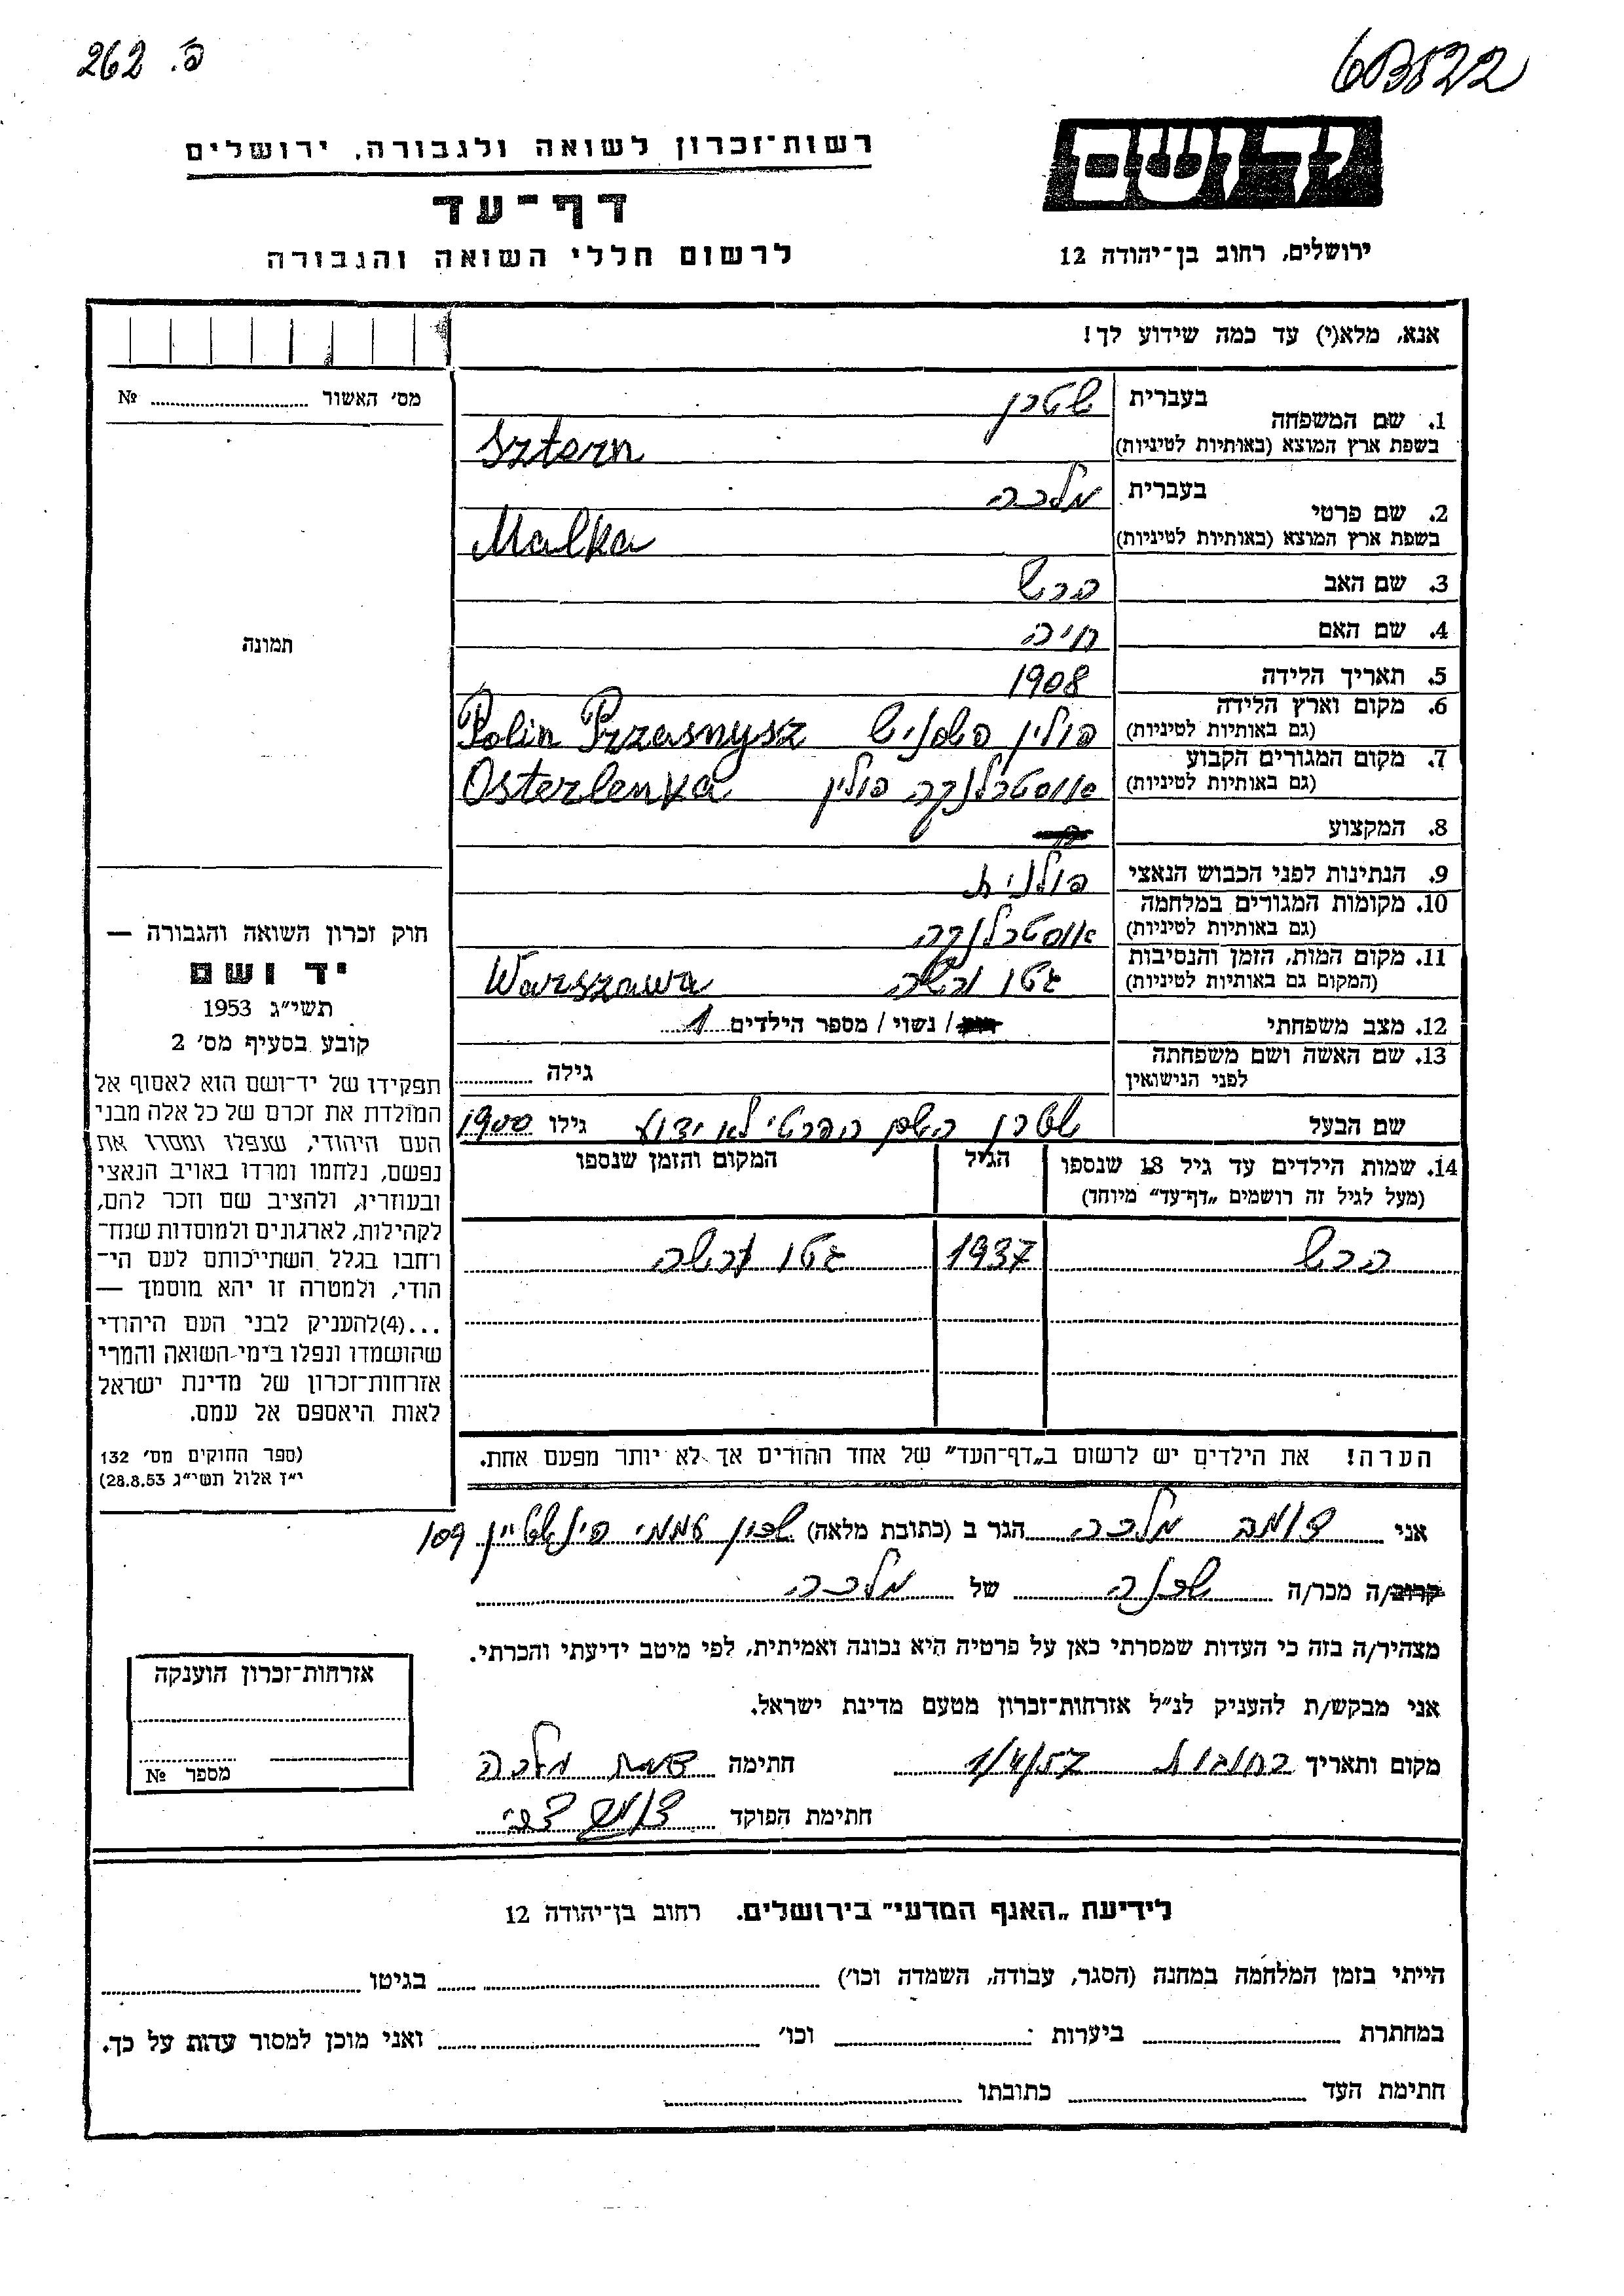 262 .פ
603822
יד ושם
רשות־זכרון לשואה ולגבורה, ירושלים
דף־עד
לרשום חללי השואה והגבורה
ירושלים, רחוב בן־יהודה 12
אנא, מלא(י) עד כמה שידוע לך!
מס׳ האשור № 
1. שם המשפחה בעברית שטרן
בשפת ארץ המוצא (באותיות לטיניות) Sztern
2. שם פרטי בעברית מלכה
בשפת ארץ המוצא (באותיות לטיניות) Malka
3. שם האב הרש
4. שם האם חיה
5. תאריך הלידה 1908
6. מקום וארץ הלידה (גם באותיות לטיניות) פולין פשסניש Polin Przasnysz
7. מקום המגורים הקבוע (גם באותיות לטיניות) אוסטרלנקה פולין Osterlenka
8. המקצוע
9. הנתינות לפני הכבוש הנאצי פולנית
10. מקומות המגורים במלחמה (גם באותיות לטיניות) אוסטרלנקה
11. מקום המות, הזמן והנסיבות (המקום גם באותיות לטיניות) גטו ורשה Warszawa
12. מצב משפחתי / נשוי / מספר הילדים 1
13. שם האשה ושם משפחתה לפני הנישואין גילה
שם הבעל שטרן השם הפרטי לא ידוע גילו 1900
14. שמות הילדים עד גיל 18 שנספו הגיל המקום והזמן שנספו
(מעל לגיל זה רושמים „דף־עד״ מיוחד)
הרש 1937 גטו ורשה
הערה! את הילדים יש לרשום ב„דף־העד״ של אחד ההורים אך לא יותר מפעם אחת.
תמונה
חוק זכרון השואה והגבורה —
יד ושם
תשי״ג 1953
קובע בסעיף מס׳ 2
תפקידו של יד־ושם הוא לאסוף אל
המולדת את זכרם של כל אלה מבני
העם היהודי, שנפלו ומסרו את
נפשם, נלחמו ומרדו באויב הנאצי
ובעוזריו, ולהציב שם וזכר להם,
לקהילות, לארגונים ולמוסדות שנח־
רחבו בגלל השתייכותם לעם הי־
הודי, ולמטרה זו יהא מוסמך —
...(4)להעניק לבני העם היהודי
שהושמדו ונפלו בימי־השואה והמרי
אזרחות־זכרון של מדינת ישראל
לאות היאספם אל עמם.
(ספר החוקים מס׳ 132
י״ז אלול תשי״ג 28.8.53)
אני מלכה הגר ב (כתובת מלאה) שכון עממי 109
קרוב/ה מכר/ה שכנה של מלכה
מצהיר/ה בזה כי העדות שמסרתי כאן על פרטיה היא נכונה ואמיתית, לפי מיטב ידיעתי והכרתי.
אני מבקש/ת להעניק לנ״ל אזרחות־זכרון מטעם מדינת ישראל.
מקום ותאריך רחובות 1/4/57 חתימה מלכה
חתימת הפוקד
אזרחות־זכרון הוענקה
מספר №
לידיעת „האגף המדעי״ בירושלים. רחוב בן־יהודה 12
הייתי בזמן המלחמה במחנה (הסגר, עבודה, השמדה וכו׳) בגיטו
במחתרת ביערות וכו׳ ואני מוכן למסור עדות על כך.
חתימת העד כתובתו